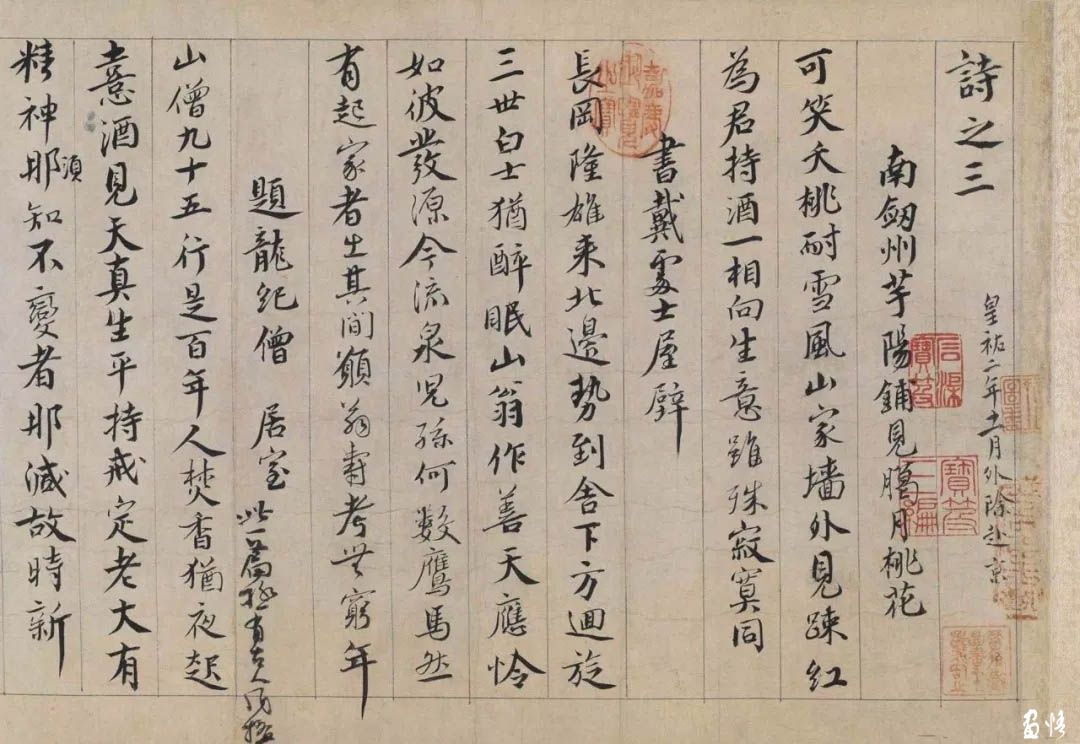 詩之三
皇祐二年十一月外除赴京
南劒州芋陽鋪見臘月桃花
可笑夭桃耐雪風山家墻外見踈紅
為君持酒一相向生意雖殊寂寞同
書戴處士屋壁
長岡隆雄来北邊勢到舍下方迴旋
三世白士猶醉眠山翁作善天應怜
如彼發源今流泉児孫何數鷹馬然
有起家者出其間願翁壽考無窮年
題龍紀僧居室
此一篇極有古人風格
山僧九十五行是百年人焚香猶夜起
憙酒見天真生平持戒定老大有
精神耶須知不變者耶減故時新